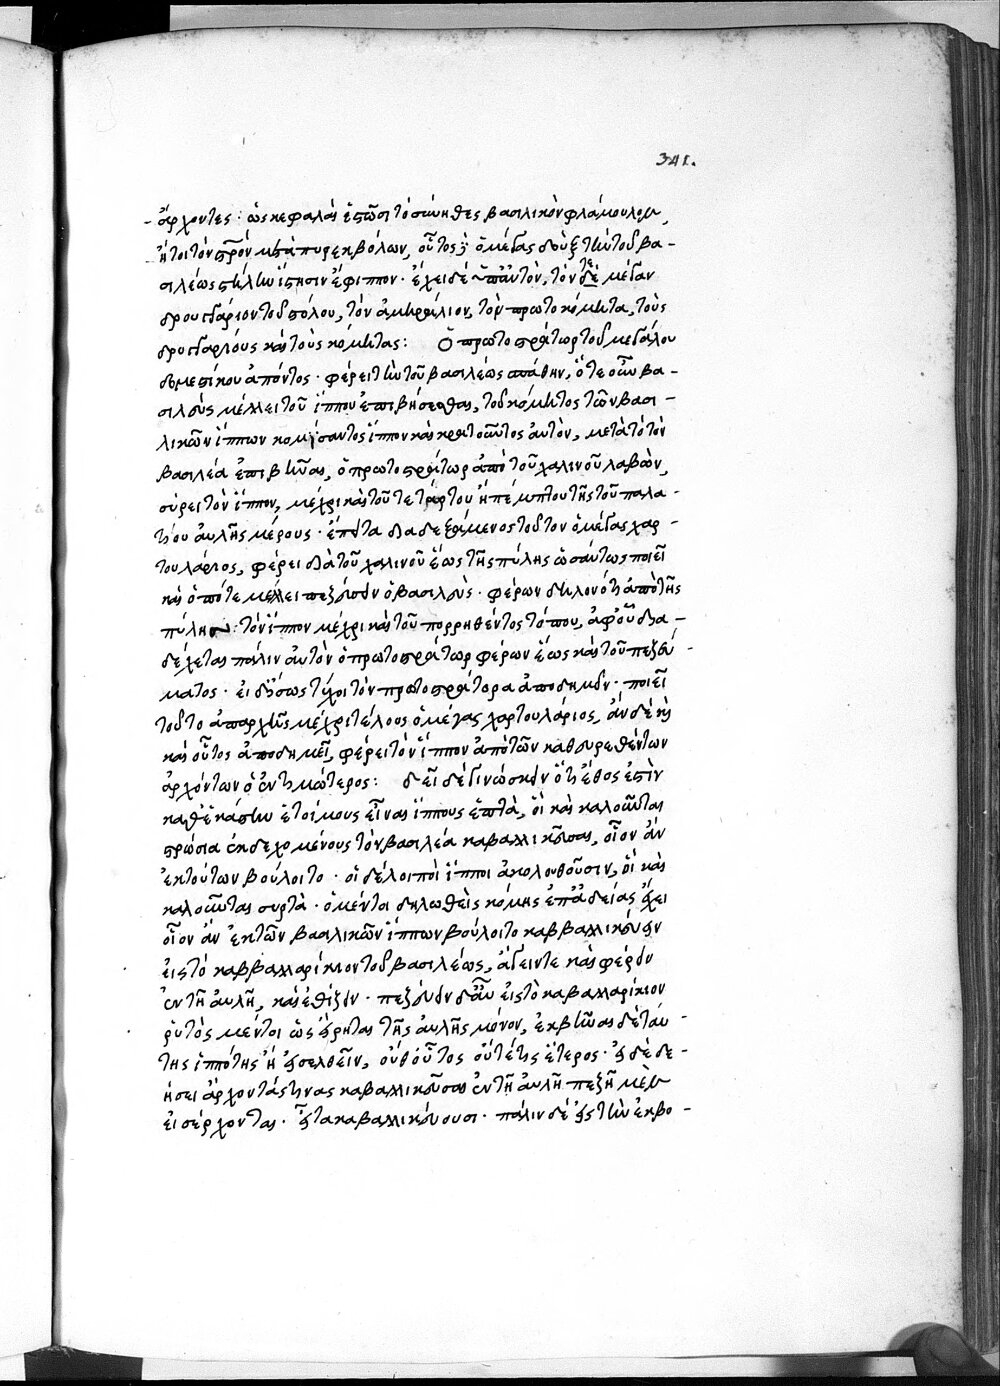 341.
ἄρχοντες· ὡς κεφαλὰς ἐπῶσι τὸ σύνηθες βασιλικὸν φλάμουλον,
ἤτοι τὸν σταυρὸν μετὰ πυρεκβόλων, οὗτος ὁ μέγας δοὺξ τὴν τοῦ βα-
σιλέως στήλην ἵστησιν ἔφιππον. ἔχει δὲ ὑπ' αὐτὸν, τόν τε μέγαν
δρουγγάριον τοῦ στόλου, τὸν ἀμηράλιον, τὸν πρωτοκόμητα, τοὺς
δρουγγαρίους καὶ τοὺς κόμητας: Ὁ πρωτοστράτωρ τοῦ μεγάλου
δομεστίκου ἀπόντος. φέρει τὴν τοῦ βασιλέως σπάθην, ὅτε οὖν βα-
σιλεὺς μέλλει τοῦ ἵππου ἐπιβήσεσθαι, τοῦ κόμητος τῶν βασι-
λικῶν ἵππων κομίσαντος ἵππον καὶ κρατοῦντος αὐτὸν, μετὰ τὸ τὸν
βασιλέα ἐπιβῆναι, ὁ πρωτοστράτωρ ἀπὸ τοῦ χαλινοῦ λαβὼν,
σύρει τὸν ἵππον, μέχρι καὶ τοῦ τετάρτου ἢ πέμπτου τῆς τοῦ παλα-
τίου αὐλῆς μέρους. ἔπειτα διαδεξάμενος τοῦτον ὁ μέγας χαρ-
τουλάριος, φέρει διὰ τοῦ χαλινοῦ ἕως τῆς πύλης ὡσαύτως ποιεῖ
καὶ ὁπότε μέλλει πεζεύσειν ὁ βασιλεύς. φέρων δηλονότι ἀπὸ τῆς
πύλης τὸν ἵππον μέχρι καὶ τοῦ πορρηθέντος τόπου, ἀφ' οὗ δια-
δέχεται πάλιν αὐτὸν ὁ πρωτοστράτωρ φέρων ἕως καὶ τοῦ πεζεύ-
ματος. εἰ δ' ἴσως τύχοι τὸν πρωτοστράτορα ἀποδημεῖν. ποιεῖ
τοῦτο ἀπαρχῆς μέχρι τέλους ὁ μέγας χαρτουλάριος, ἂν δέ τις
καὶ οὗτος ἀποδημεῖ, φέρει τὸν ἵππον ἀπὸ τῶν καθευρεθέντων
ἀρχόντων ὁ ἐντιμώτερος: δεῖ δὲ γινώσκειν ὅτι ἔθος ἐστὶν
καθ' ἑκάστην ἑτοίμους εἶναι ἵππους ἑπτὰ, οἳ καὶ καλοῦνται
πρώσια ἐκδεχομένους τὸν βασιλέα καβαλλικεῦσαι, οἷον ἂν
ἐκ τούτων βούλοιτο. οἱ δὲ λοιποὶ ἵπποι ἀκολουθοῦσιν, οἳ καὶ
καλοῦνται συρτὰ. ὁ μέντοι δηλωθεὶς κόμης ἐπ' ἀδείας ἔχει
οἷον ἂν ἐκ τῶν βασιλικῶν ἵππων βούλοιτο καββαλλικεύειν
εἰς τὸ καββαλλαρίκιον τοῦ βασιλέως, ἄγειν τε καὶ φέρειν
ἐν τῇ αὐλῇ, καὶ ἐθίζειν. πεζεύειν δ' αὖ εἰς τὸ καβαλλαρίκιον
ἐντὸς μέντοι ὡς εἴρηται τῆς αὐλῆς μόνον, ἐκβῆναι δὲ ταύ-
της ἱππότης ἢ εἰσελθεῖν, οὔθ' οὗτος οὔτέ τις ἕτερος. εἰ δὲ δε-
ήσει ἄρχοντάς τινας καβαλλικεῦσαι ἐν τῇ αὐλῇ πεζῇ μὲν
εἰσέρχονται. εἶτα καβαλλικεύουσι. πάλιν δὲ εἰς τὴν ἐκβο-